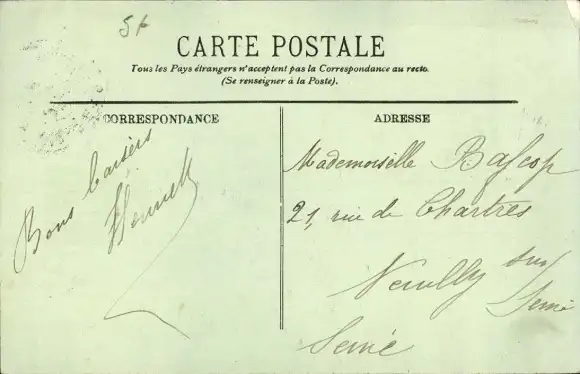 5f
CARTE POSTALE
Tous les Pays étrangers n'acceptent pas la Correspondance au recto.
(Se renseigner à la Poste).
CORRESPONDANCE
ADRESSE
Bons baisers
Mademoiselle
21, rue de Chartres
Neuilly sur
Seine
Seine